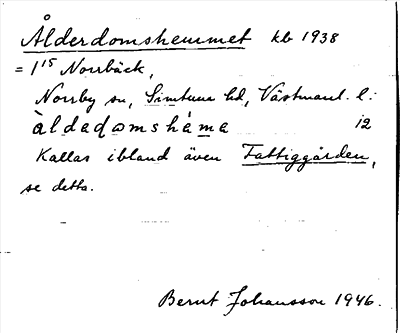 Ålderdomshemmet kb 1938
= 1¹⁵ Norrbäck,
Norrby sn, Simtuna hd, Västmanl. l:
àldadomshéma 12
Kallas ibland även Fattiggården,
se detta.
Bernt Johansson 1946.